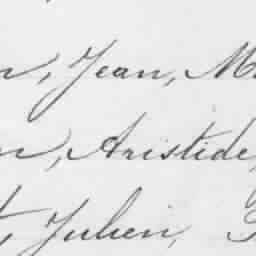 Jean,
Aristide,
Julien,